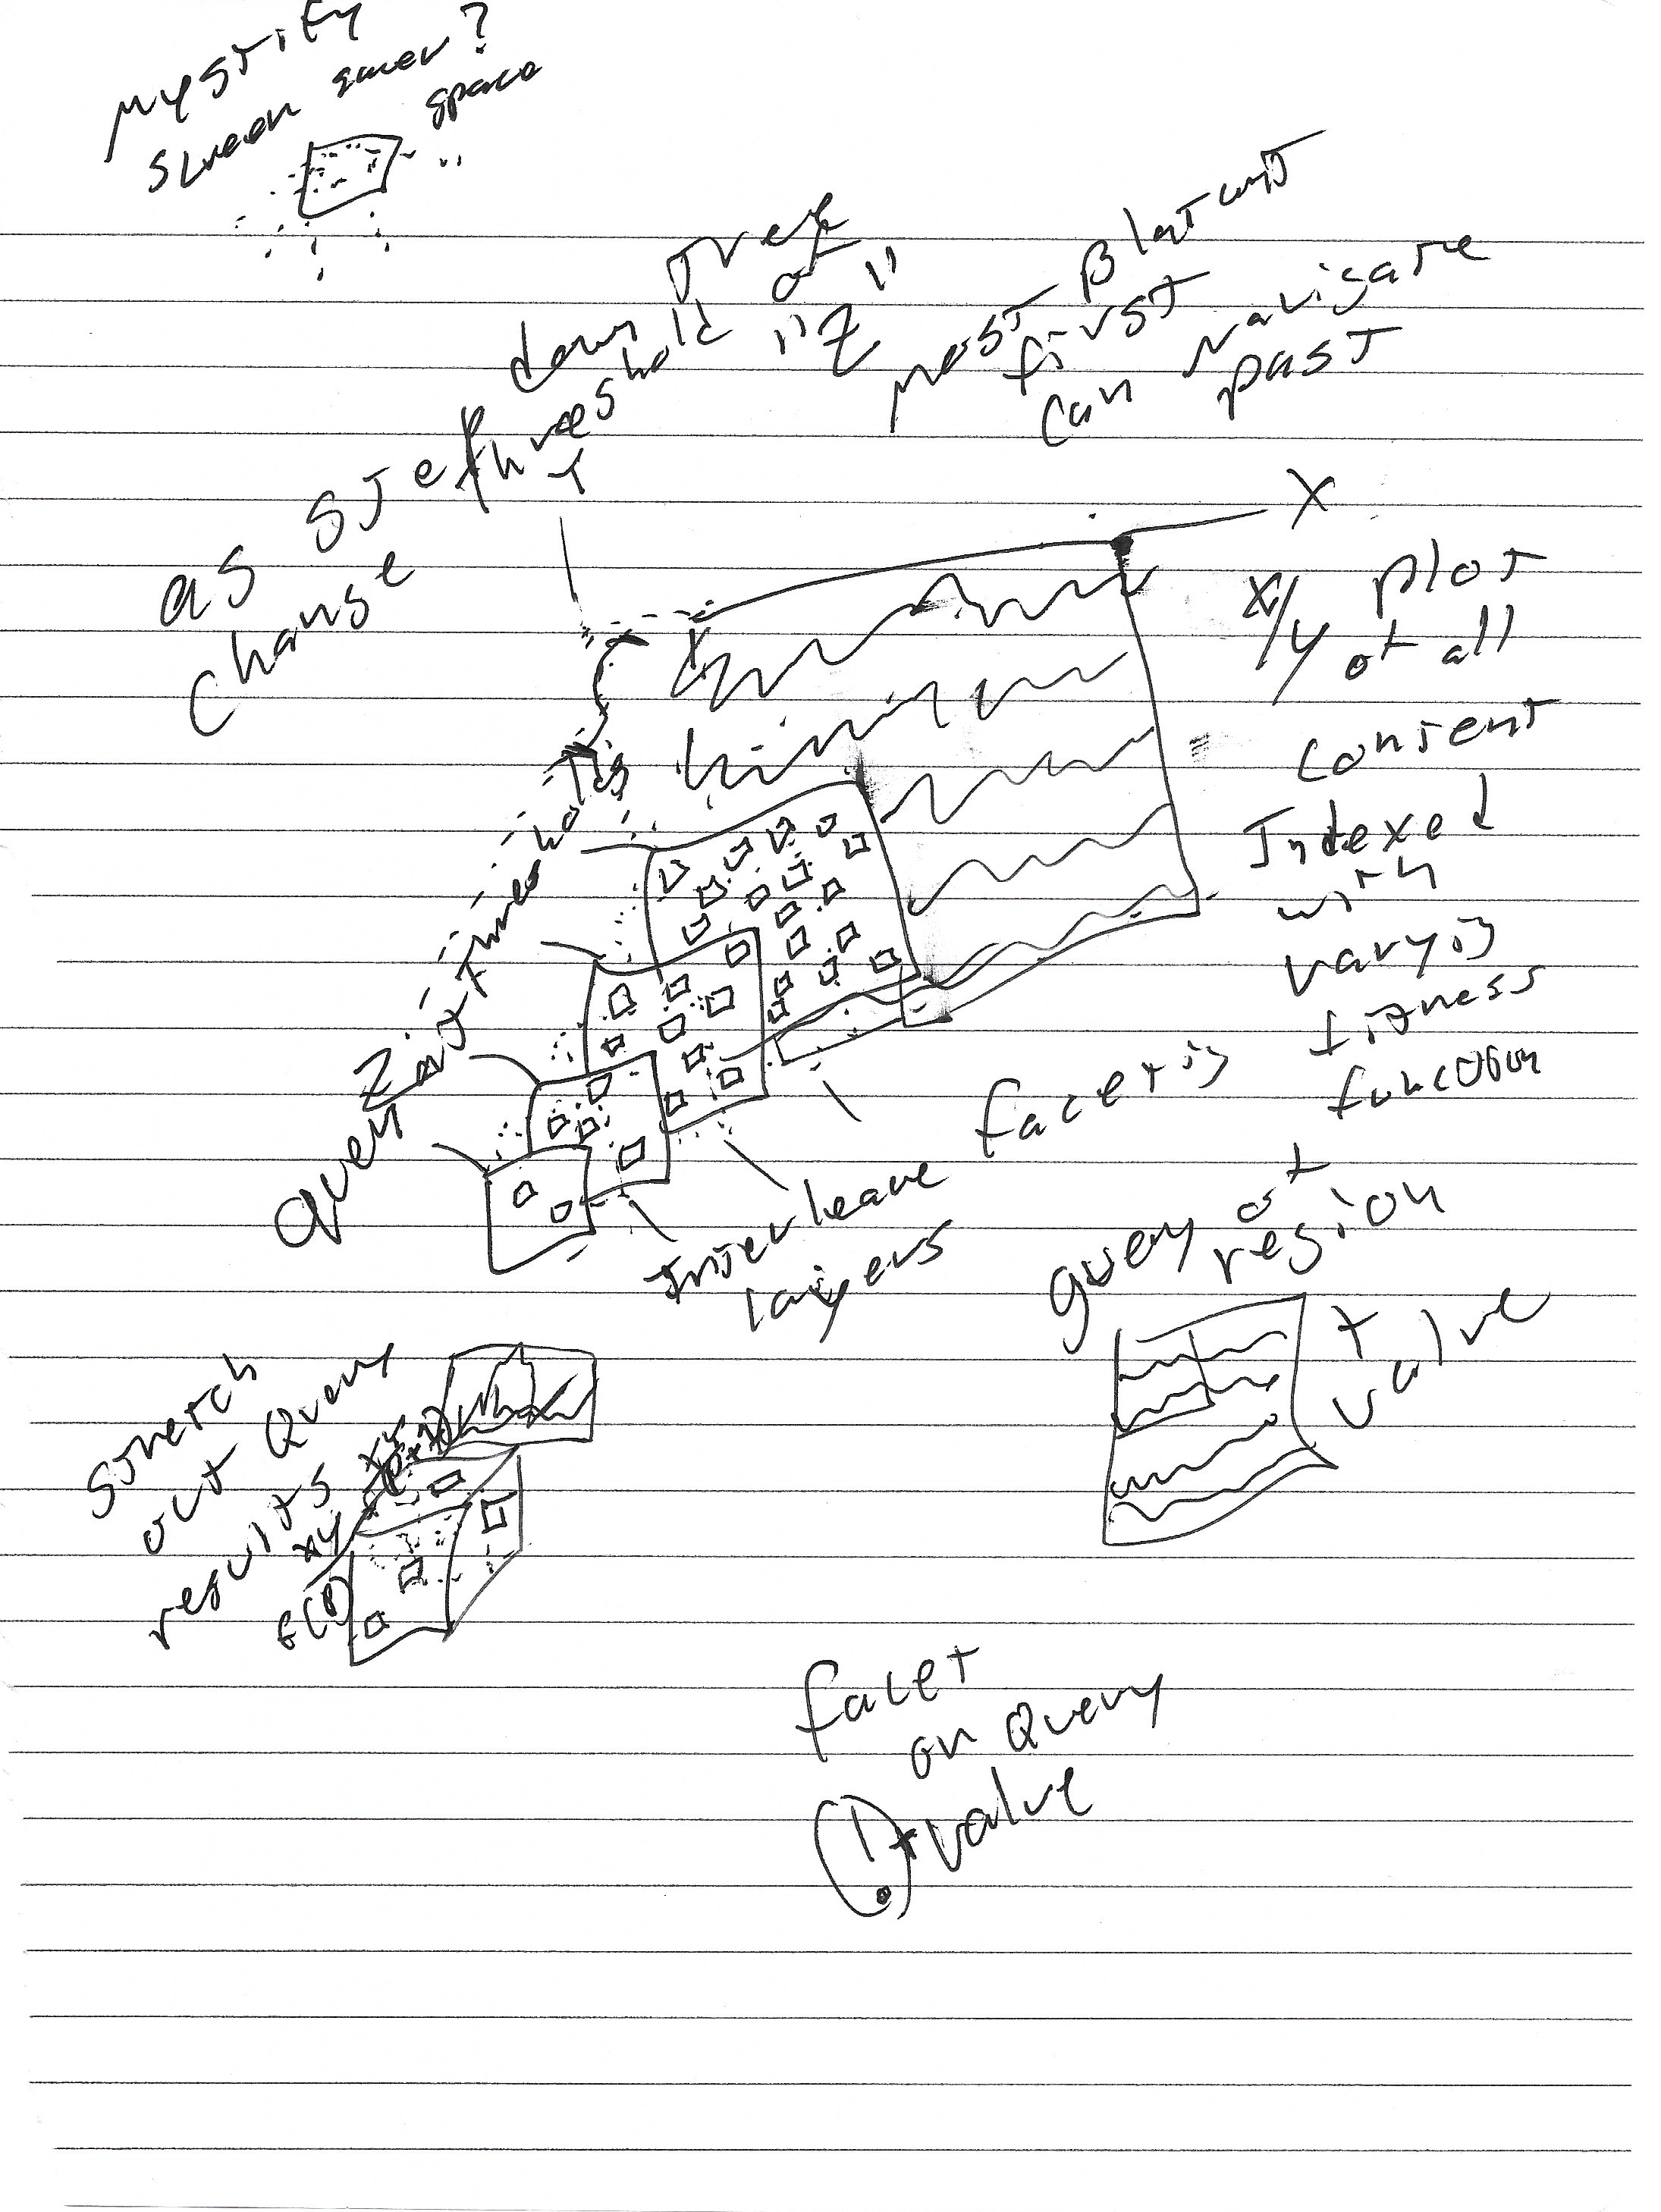 Mystify
screen saver?
space
as step down tree
change threshold of
"Z"
most Blatant
first
can navigate
past
Y
X
X/Y plot
of all
content
Indexed
with
varyig
fitness
function
Query
Thresholds
facetig
Interleave
layers
query of
region
+
value
stretch
out Query
results
xy
facet
on Query
+ value
!